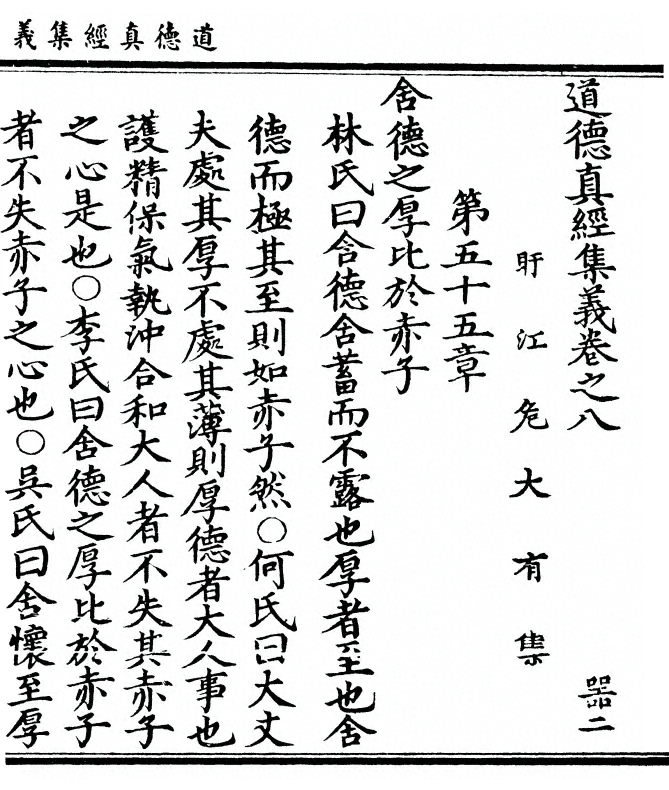 道德真經集義
道德真經集義卷之八
器二
盱江危大有集
第五十五章
含德之厚比於赤子
林氏曰含德含蓄而不露也厚者至也含
德而極其至則如赤子然○何氏曰大丈
夫處其厚不處其薄則厚德者大人事也
護精保氣執沖合和大人者不失其赤子
之心是也○李氏曰含德之厚比於赤子
者不失赤子之心也○吳氏曰含懷至厚